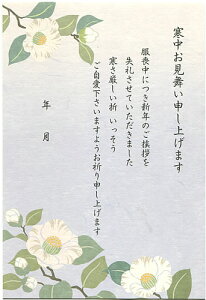 寒中お見舞い申し上げます
服喪中につき新年のご挨拶を
失礼させていただきました
寒さ厳しい折 いっそう
ご自愛下さいますようお祈り申し上げます
年 月